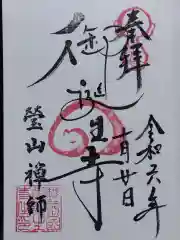 奉拝
令和六年
十月廿日
御誕生寺
瑩山禅師